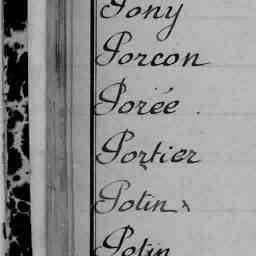 Pony
Porcon
Porée .
Portier
Potin
Potin